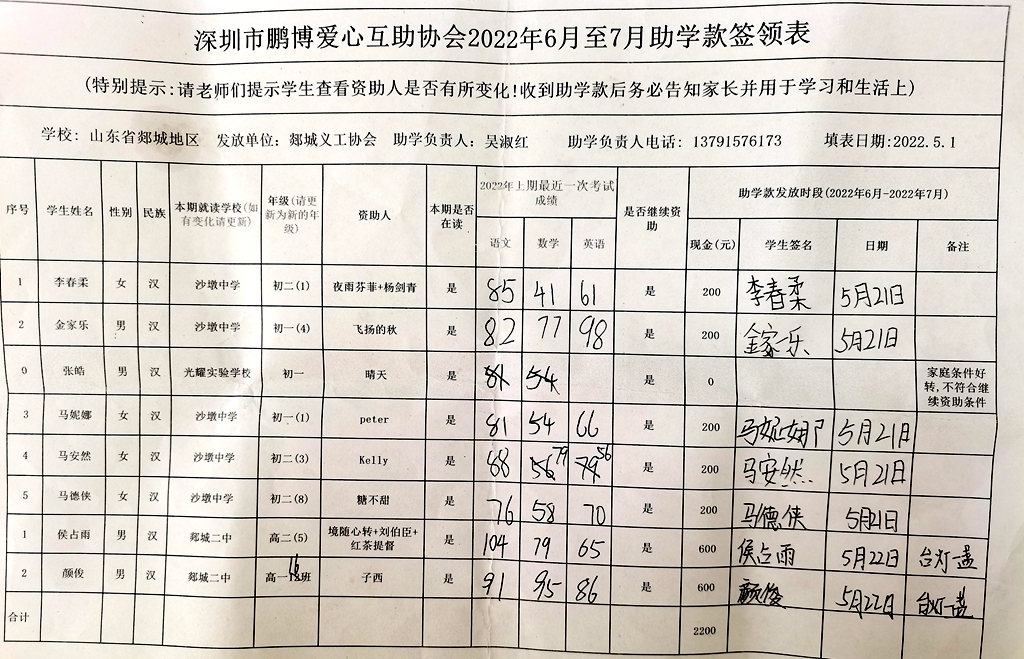 深圳市鹏博爱心互助协会2022年6月至7月助学款签领表
(特别提示:请老师们提示学生查看资助人是否有所变化!收到助学款后务必告知家长并用于学习和生活上)
学校: 山东省郯城地区 发放单位: 郯城义工协会 助学负责人: 吴淑红 助学负责人电话: 13791576173 填表日期:2022.5.1
序号 学生姓名 性别 民族 本期就读学校(如有变化请更新) 年级(请更新为新的年级) 资助人 本期是否在读 2022年上期最近一次考试成绩 是否继续资助 助学款发放时段(2022年6月-2022年7月)
语文 数学 英语 现金(元) 学生签名 日期 备注
1 李春柔 女 汉 沙墩中学 初二(1) 夜雨芬菲+杨剑青 是 85 41 61 是 200 李春柔 5月21日
2 金家乐 男 汉 沙墩中学 初一(4) 飞扬的秋 是 82 77 98 是 200 金家乐 5月21日
0 张皓 男 汉 光耀实验学校 初一 晴天 是 81 54 是 0 家庭条件好转,不符合继续资助条件
3 马妮娜 女 汉 沙墩中学 初一(1) peter 是 81 54 66 是 200 马妮娜 5月21日
4 马安然 女 汉 沙墩中学 初二(3) Kelly 是 88 56 79 79 56 是 200 马安然 5月21日
5 马德侠 女 汉 沙墩中学 初二(8) 糖不甜 是 76 58 70 是 200 马德侠 5月21日
1 侯占雨 男 汉 郯城二中 高二(5) 境随心转+刘伯臣+红茶提督 是 104 79 65 是 600 侯占雨 5月22日 台灯一盏
2 颜俊 男 汉 郯城二中 高一16班 子西 是 91 95 86 是 600 颜俊 5月22日 台灯一盏
合计 2200